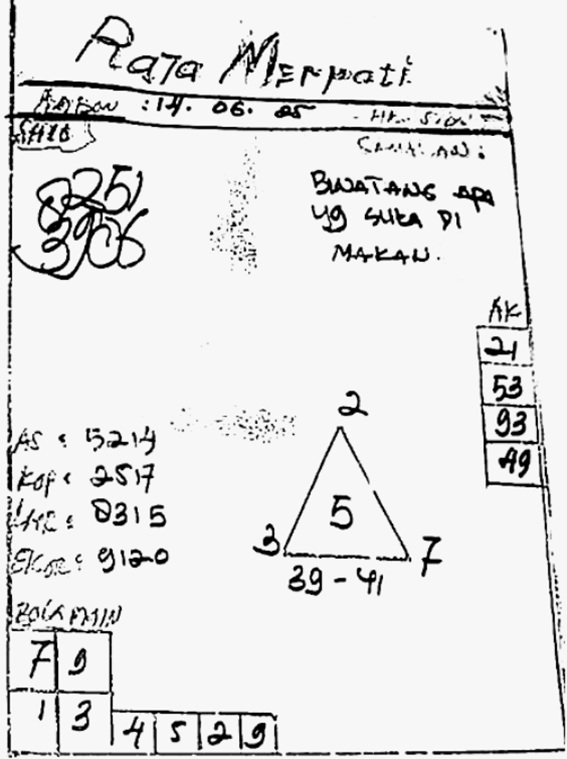 Raja Merpati
: 14. 06. 05
8251
3906
BINATANG APA
YG SUKA DI
MAKAN.
AK
21
53
93
49
AS : 5214
KOP : 2517
: 8315
EKOR : 9120
2
5
3 7
39 - 41
BOLA MAIN
7 9
1 3
4 5 2 9